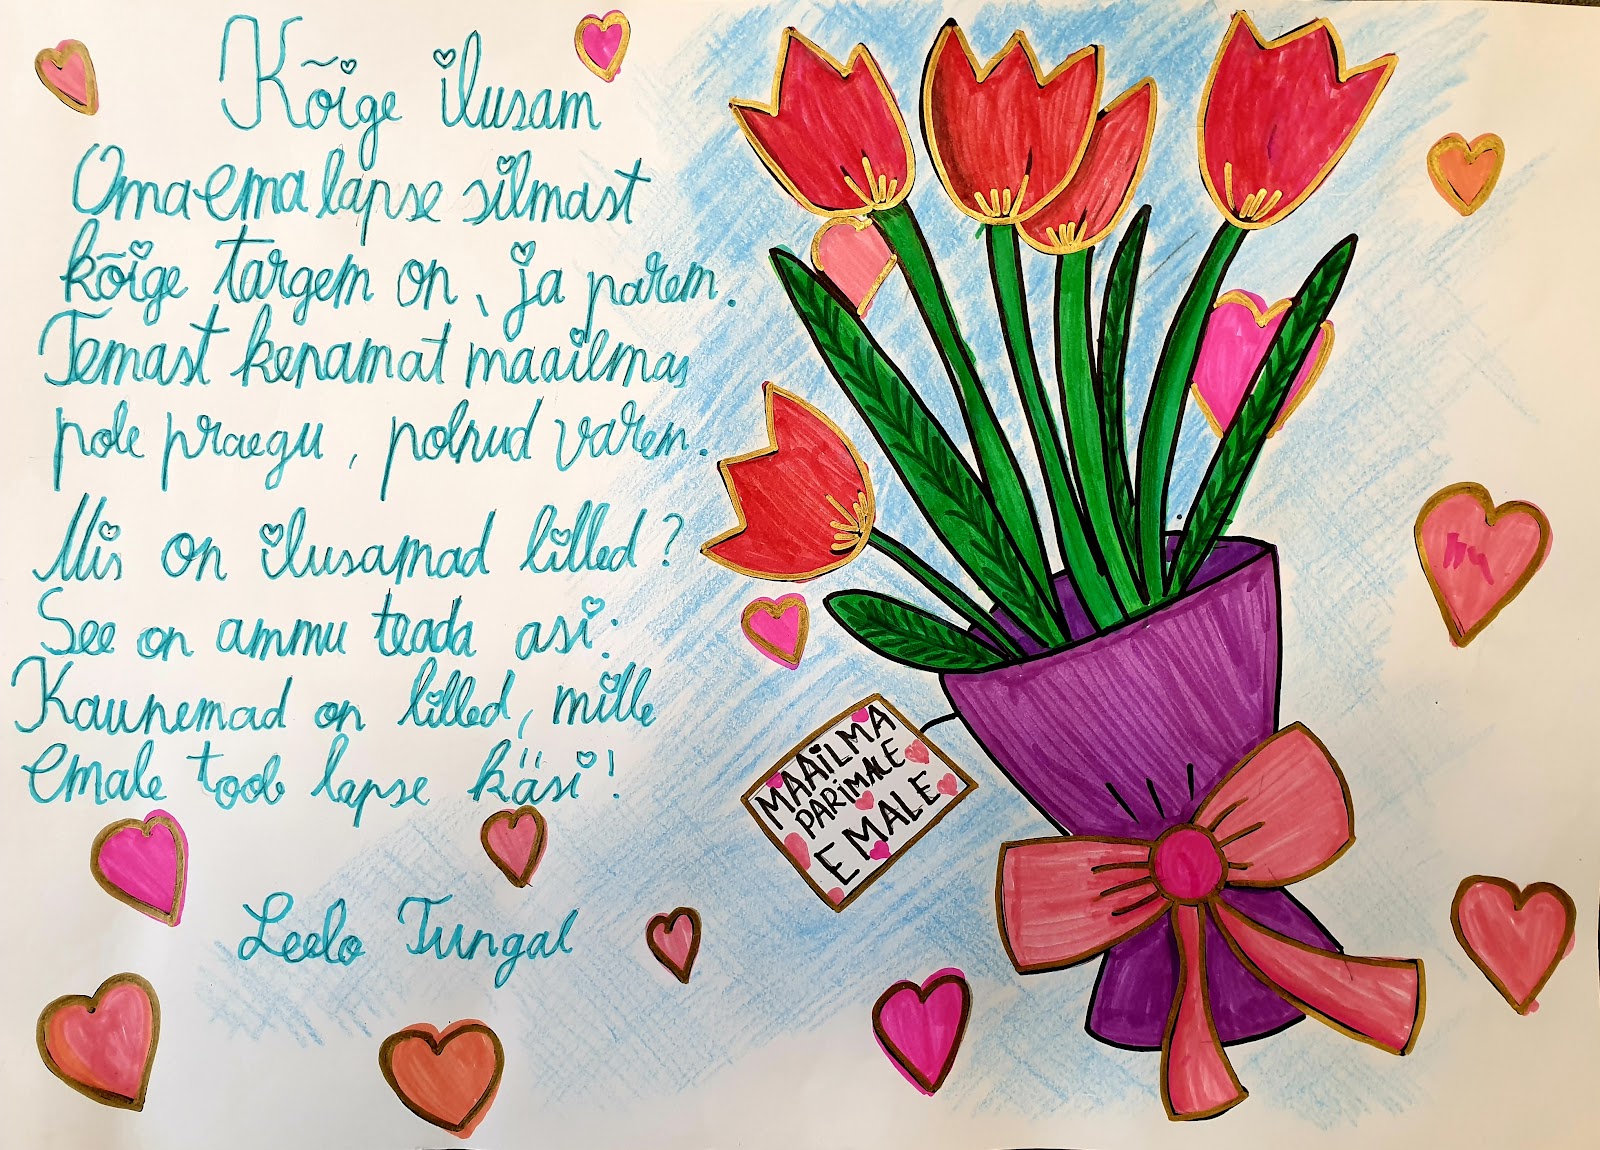 Kõige ilusam
Oma ema lapse silmast
kõige targem on, ja parem.
Temast kenamat maailmas
pole praegu, polnud varem.
Mis on ilusamad lilled?
See on ammu teada asi:
Kaunemad on lilled, mille
emale toob lapse käsi!
Leelo Tungal
MAAILMA
PARIMALE
EMALE